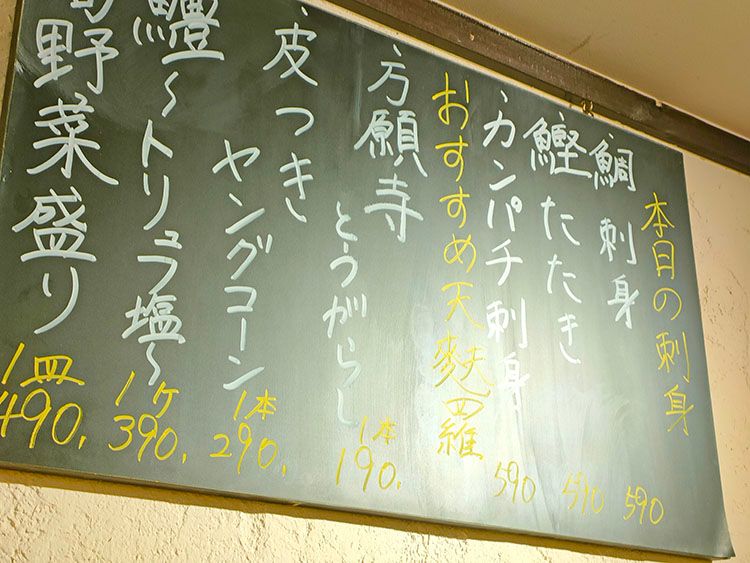 本日の刺身
・鯛刺身 590
・鰹たたき 590
・カンパチ刺身 590
おすすめ天麩羅
・万願寺とうがらし 1本190,
・皮つきヤングコーン 1本290,
鱧〜トリュフ塩〜 1ケ390,
野菜盛り 1皿490,